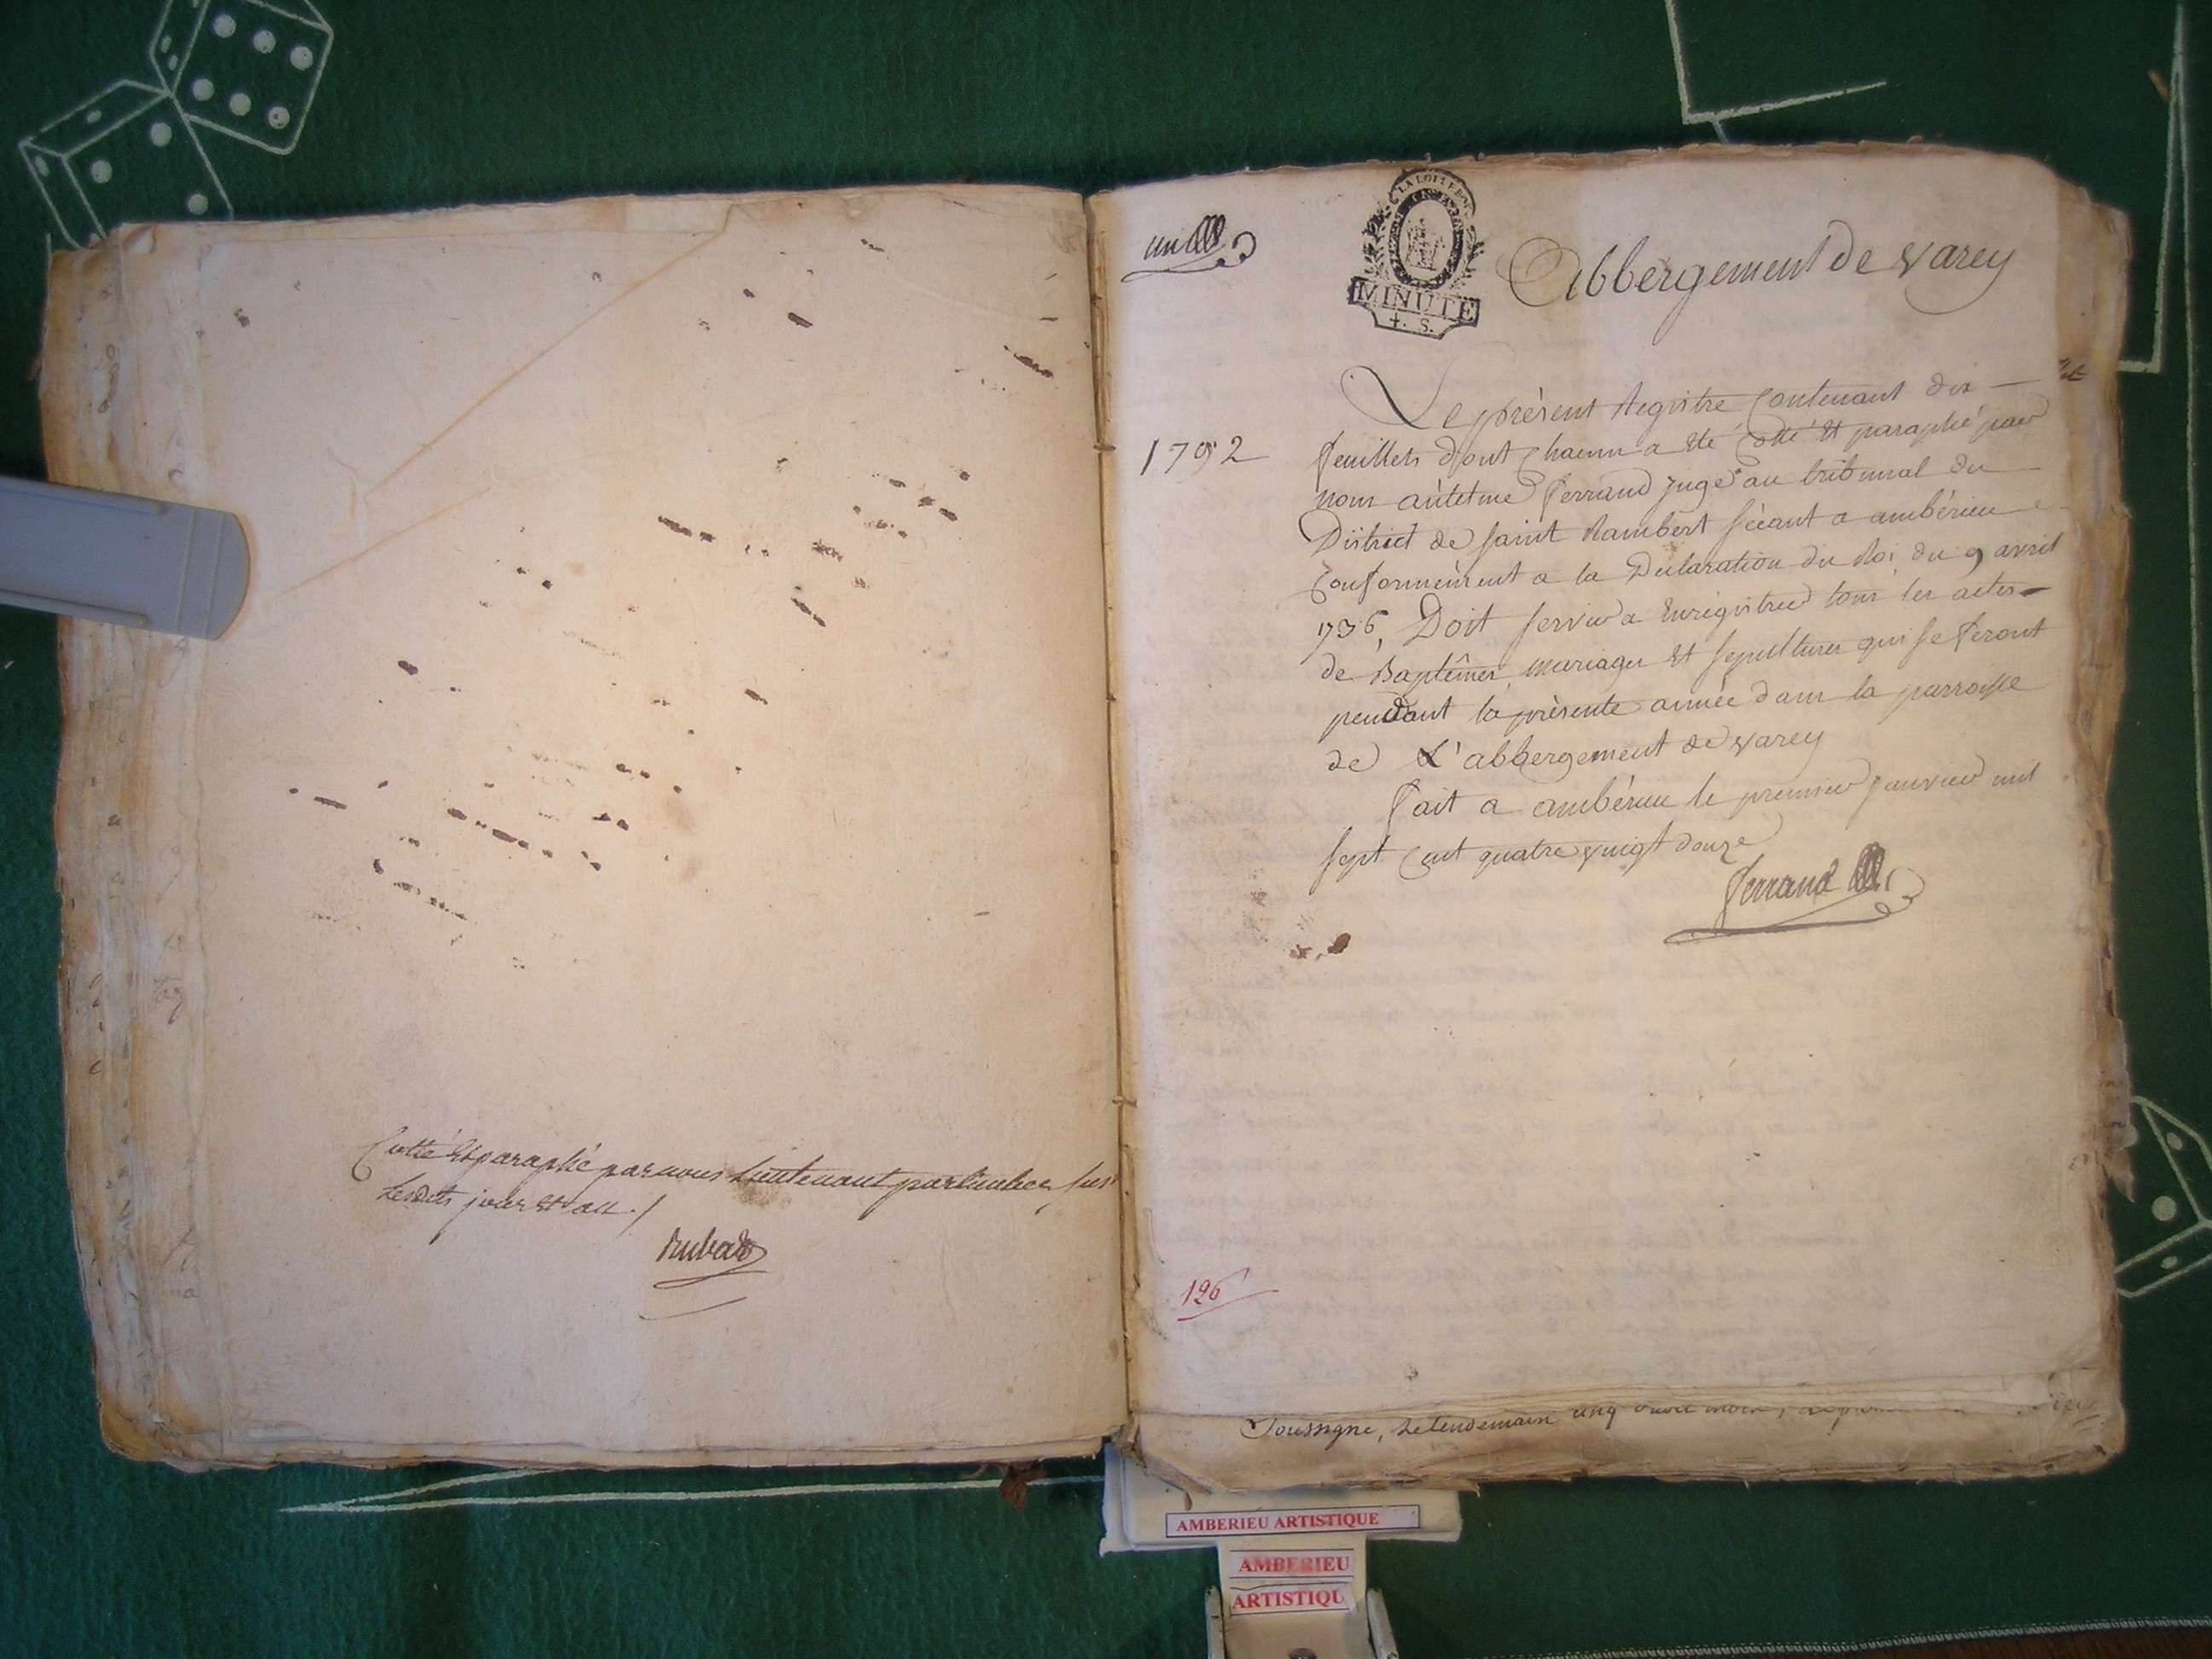 Cotté et paraphé par nous Lieutenant particulier susd
lesdits jour et an ./
un
LA LOI LE ROI
MINUTE
4. S.
Abbergement de varey
1792
Le présent Registre Contenant dix
feuillets dont chacun a eté Cotté et paraphé par
nous antelme ferrand juge au tribunal du
District de saint Rambert séeant a ambérieu
Conformément a la Déclaration du Roi du 9 avril
1736, Doit servir a Enrégistrer tous les actes
de Baptêmes, mariages et sepultures qui se feront
pendant la présente année dans la parroisse
de L'abbergement de varey
fait a ambérieu le premier janvier mil
sept cent quatre vingt douze
ferrand
126
soussigné, Le lendemain cinq
AMBERIEU ARTISTIQUE
AMBERIEU
ARTISTIQU